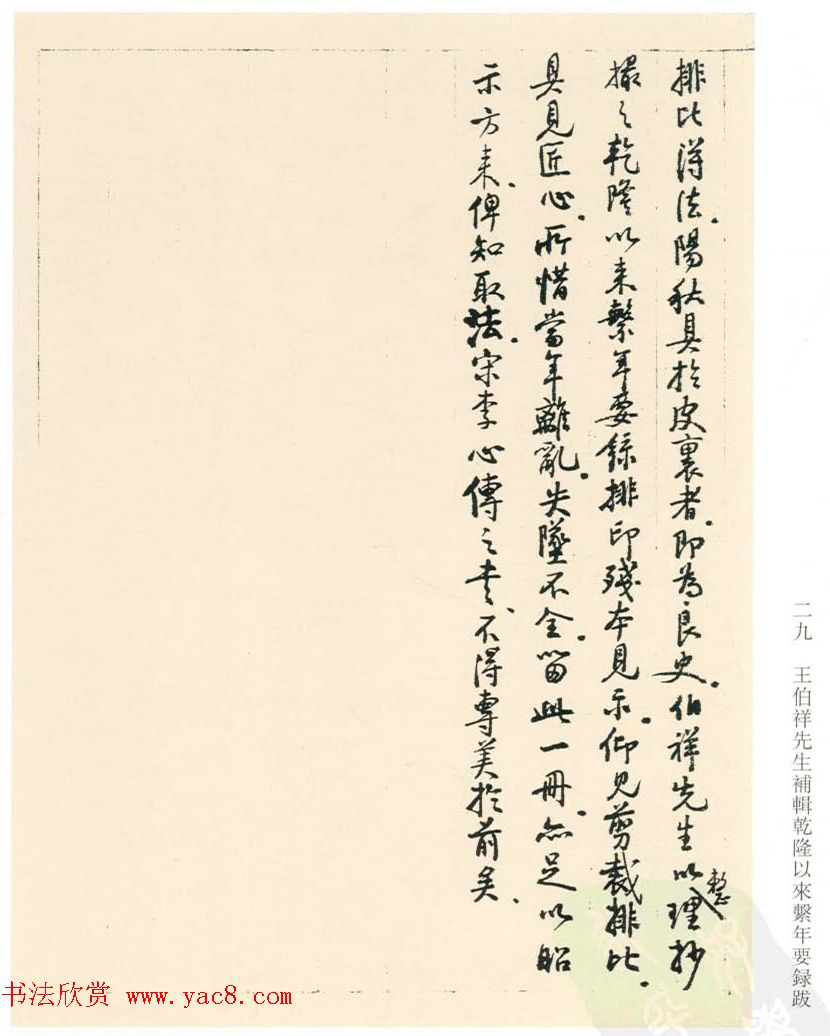 排比得法。陽秋具於皮裏者。即為良史。伯祥先生以整理抄
撮之乾隆以来繫年要錄排印殘本見示。仰見剪裁排比。
具見匠心。所惜當年離亂。失墜不全。留此一冊。亦足以昭
示方来。俾知取法。宋李心傳之書、不得專美於前矣、
二九 王伯祥先生補輯乾隆以來繫年要録跋
书法欣赏 www.yac8.com